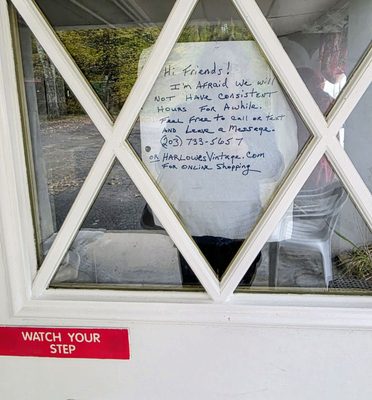 Hi Friends!
I'm Afraid we will
Not Have Consistent
Hours For Awhile.
Feel Free to Call or text
and Leave a Message.
(203) 733-5657
or HarlowesVintage.com
For Online Shopping
WATCH YOUR
STEP